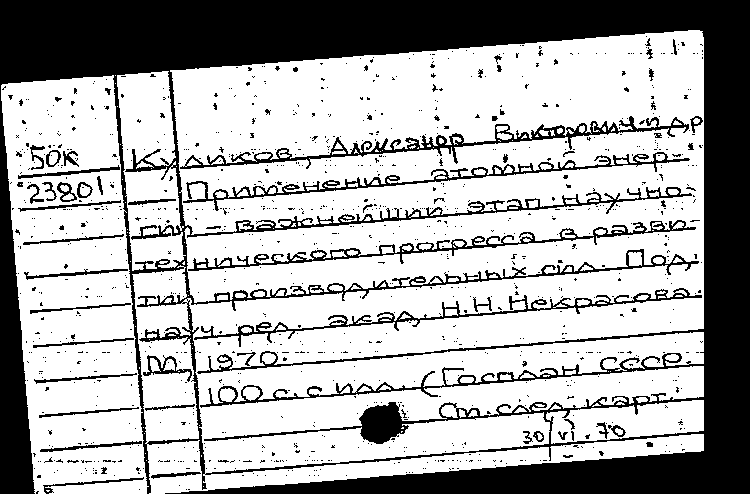 50к Куликов, Александр Викторович и др
23801. Применение атомной энер-
гии - важнейший этап научно-
технического прогресса в разви-
тии производительных сил. Под.
науч. ред. акад. Н.Н.Некрасова.
М., 1970.
100 с. с илл. (Госплан СССР.
См. след. карт.
30/VI.70